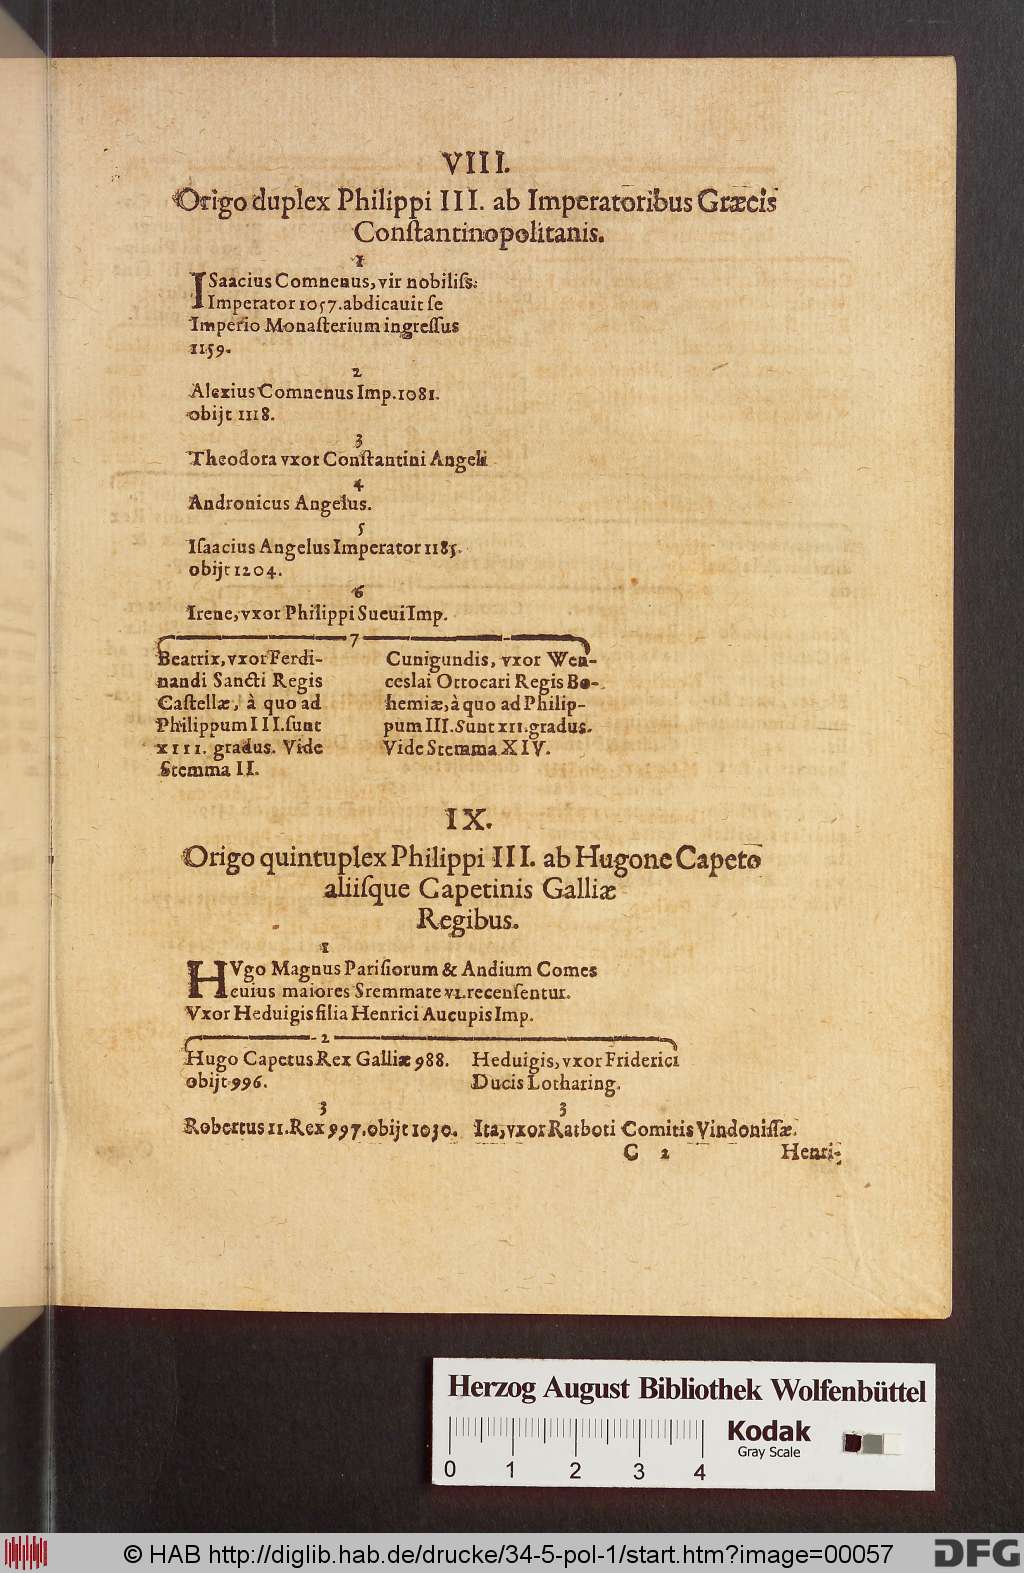 VIII.
Origo duplex Philippi III. ab Imperatoribus Græcis
Conſtantinopolitanis.
1
ISaacius Comnenus, vir nobiliſs:
Imperator 1057. abdicauit ſe
Imperio Monaſterium ingreſſus
1159.
2
Alexius Comnenus Imp. 1081.
obijt 1118.
3
Theodora vxor Conſtantini Angeli
4
Andronicus Angelus.
5
Iſaacius Angelus Imperator 1185.
obijt 1204.
6
Irene, vxor Philippi Sueui Imp.
7
Beatrix, vxor Ferdi-
nandi Sancti Regis
Caſtellæ, à quo ad
Philippum III. ſunt
XIII. gradus. Vide
Stemma II.
Cunigundis, vxor Wen-
ceslai Ottocari Regis Bo-
hemiæ, à quo ad Philip-
pum III. Sunt XII. gradus.
Vide Stemma XIV.
IX.
Origo quintuplex Philippi III. ab Hugone Capeto
aliiſque Capetinis Galliæ
Regibus.
1
HVgo Magnus Pariſiorum & Andium Comes
cuius maiores Sremmate VI. recenſentur.
Vxor Heduigis filia Henrici Aucupis Imp.
2
Hugo Capetus Rex Galliæ 988.
obijt 996.
Heduigis, vxor Friderici
Ducis Lotharing.
3 3
Robertus II. Rex 997. obijt 1030. Ita, vxor Ratboti Comitis Vindoniſſæ.
C 2 Henri-
Herzog August Bibliothek Wolfenbüttel
Kodak
Gray Scale
0 1 2 3 4
© HAB http://diglib.hab.de/drucke/34-5-pol-1/start.htm?image=00057
DFG